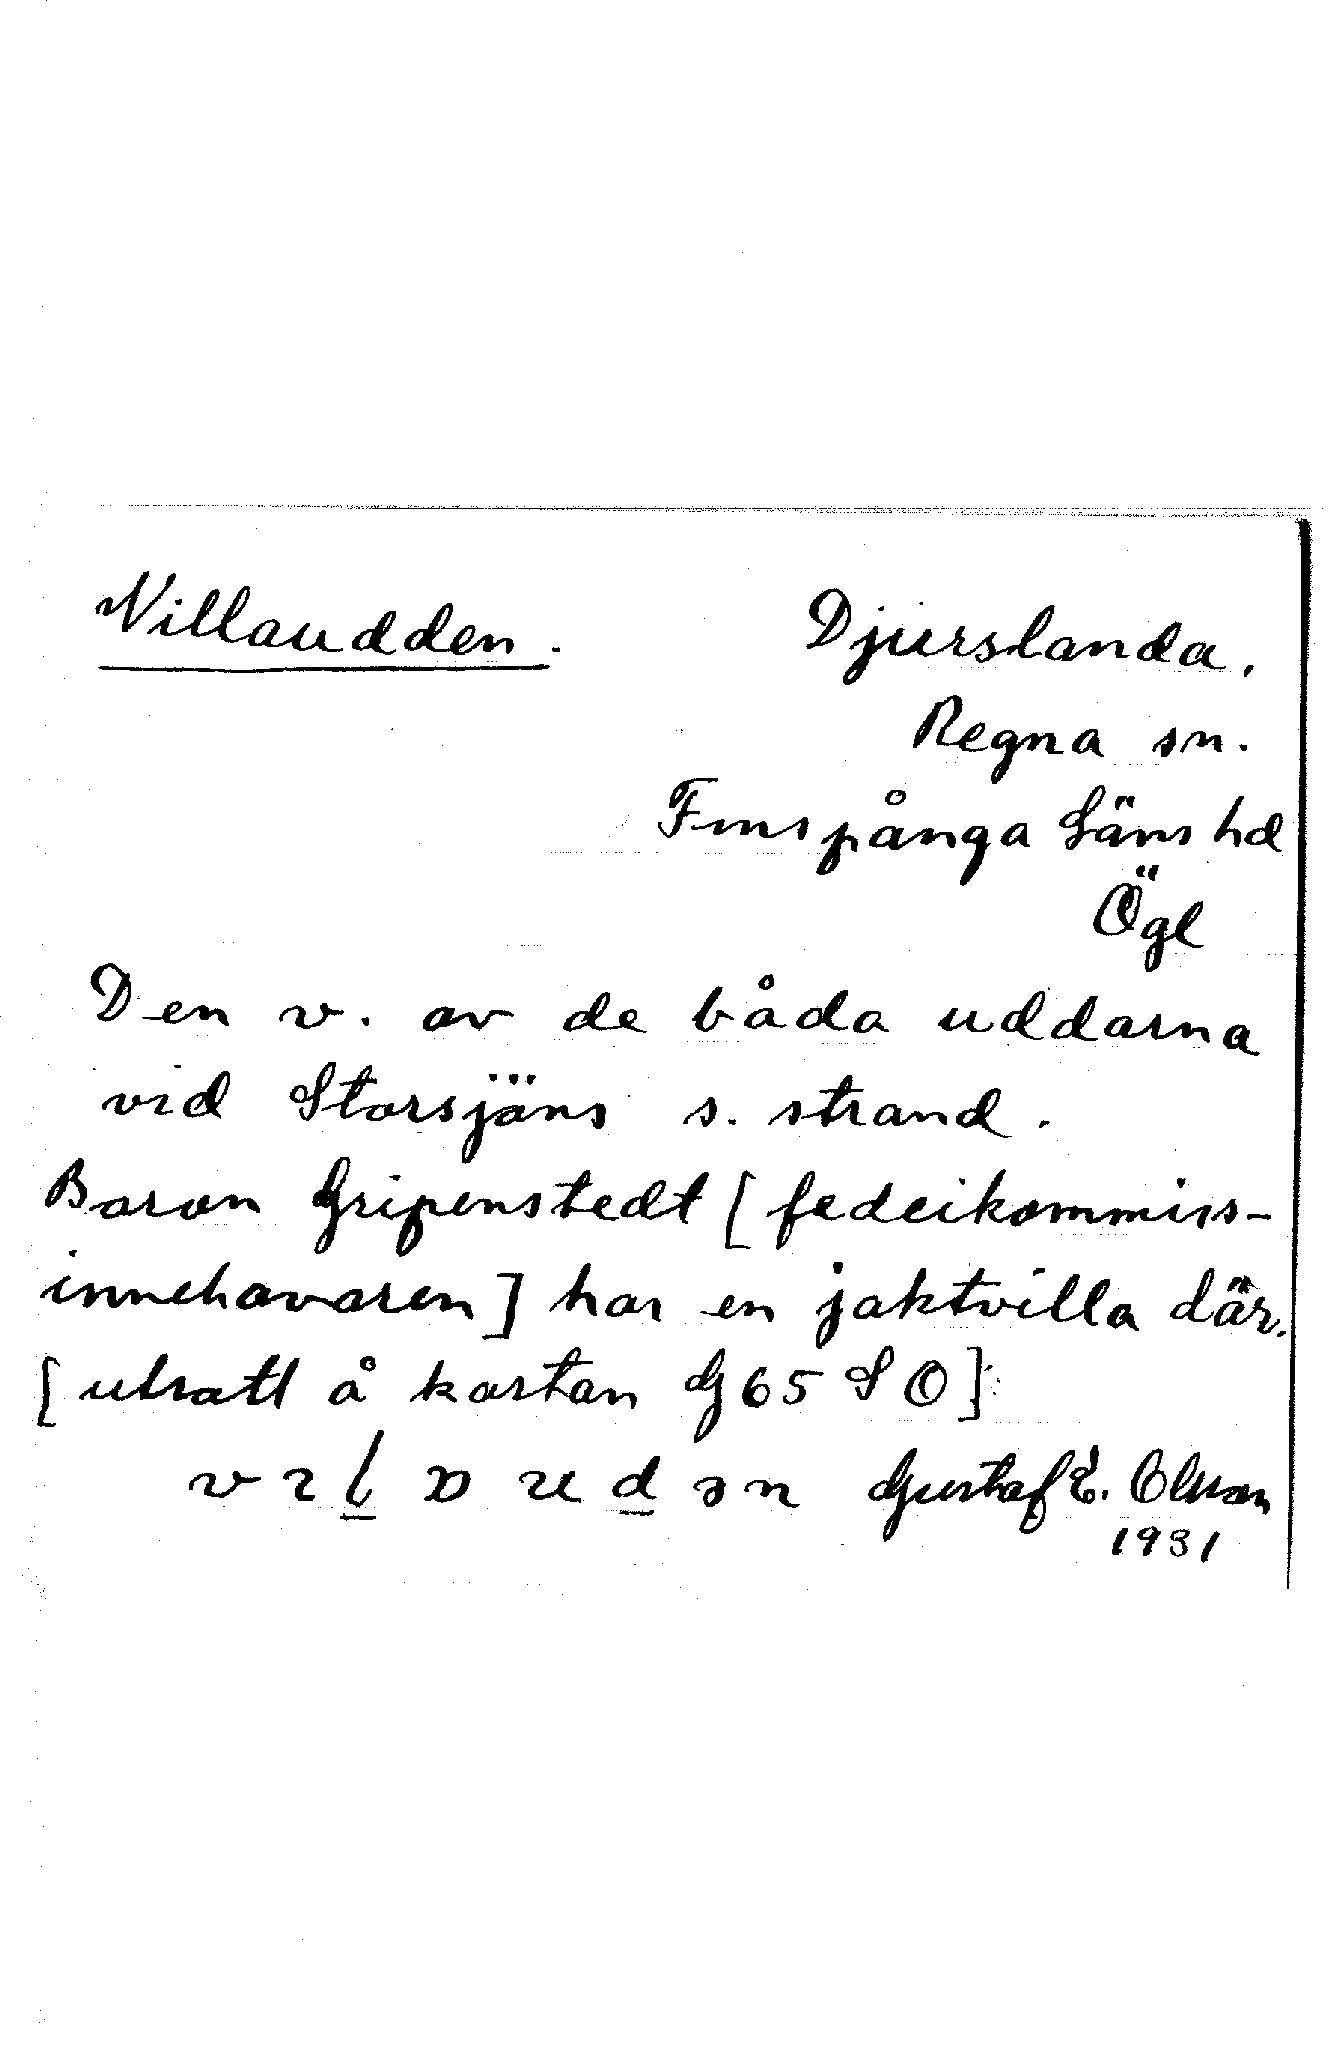 Villaudden. Djurslanda.
Regna sn.
Finspånga Läns hd
Ögl
Den v. av de båda uddarna
vid Storsjöns s. strand.
Baron Gripenstedt [fedeikommiss-
innehavaren] har en jaktvilla där.
[utsatt å kartan G 65 S O]
Gustaf E. Olsson
1931